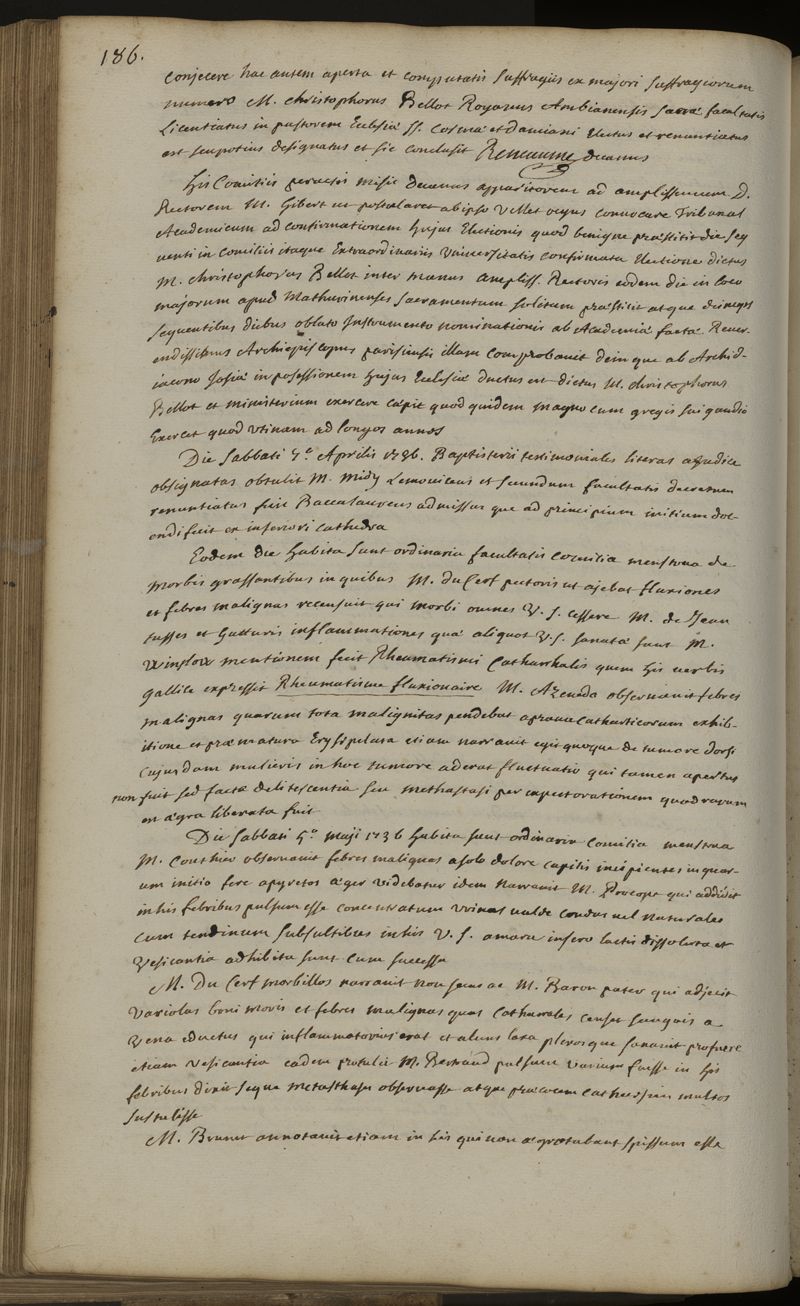 186.
Conjecere hac autem aperta et computatis suffragiis ex majori suffragiorum
numero M. Christophorus Bellot Royarus Ambianensis sacrae facultatis
Licentiatus in pastorem Ecclesiae SS. Cosmae et Damiani Electus et renuntiatus
est seu potius designatus et sic conclusit Reneaume decanus
His Comitiis peractis misit decanus apparitorem ad amplissimum D.
Rectorem M. Gibert ut postularet ab ipso vellet ocyus convocare Tribunal
Academicum ad confirmationem hujus Electionis quod benigne praestitit die seq
uenti in Comitiis itaque Extraordinariis Universitatis confirmata Electione dictus
M. Christophorus Bellot inter manus ampliss. Rectoris eodem die in loco
majorum apud Mathurinenses Sacramentum solitum praestitit atque deinceps
sequentibus diebus oblato Instrumento nominationis ab Academia facta Rever-
endissimus Archiepiscopus parisiensis illam comprobavit deinque ab Archid-
iacono Josia in possessionem hujus Ecclesiae ductus est dictus M. Christophorus
Bellot et ministerium exercere caepit quod quidem magno cum gregis sui gaudio
Exercet quod utinam ad longos annos
Die Sabbati 7a Aprilis 1736. Baptisterii testimoniales literas a Judice
obsignatas obtulit M. Midy Lemovicaeus et secundum facultatis decretum
renuntiatus fuit Baccalaureus admissus que ad principium initium doc-
endi fecit ex inferiori cathedra
Eodem die habita sunt ordinaria facultatis Comitia menstrua de
morbis grassantibus in quibus M. Du Cerf pectoris ut ajebat fluxiones
et febres malignas recensuit qui morbi omnes V. S. cessere M. de Jean
tusses et Gutturis inflammationes quae aliquot V. S. sanatae sunt M.
Winslow mentionem fecit Rheumatismi Catharrhalis quem his verbis
Gallice expressit Rheumatisme fluxionaire M. Azenada observavit febres
malignas quarum tota malignitas pendebat a prava Catharticorum exhib-
itione et praematura Erysipelata etiam narravit egit quoque de tumore dorsi
Cujusdam mulieris in hoc tumore aderat fluctuatio qui tamen apertus
non fuit sed facta delitescentia seu methastasi per expectorationem quadragum
ex aegra liberata fuit
Die Sabbati 5a Maji 1736 habita sunt ordinaria Comitia menstrua
M. Couthier observavit febres malignas a solo dolore capitis incipientes in quar-
um initio fere apyretos aeger videbatur idem narravit M. Procope qui addidit
in his febribus pulsum esse concentratum urinas valde crudas vel naturales
cum tendinum subsultibus in his V. S. amara in sero lactis dissoluta et
Vesicantia adhibita sunt cum successu
M. Du Cerf morbillos narravit non secus ac M. Baron pater qui adjecit
Variolas boni moris et febres malignas quas Catharrales censet sanguis e
vena eductus qui inflammatorius erat et alvus laxa plerosque sanavit profuere
etiam vesicantia eadem protulit M. Bertrand pulsum varium fuisse in his
febribus dixit seque metasthases observasse atque praecocem catharsim multos
sustulisse
M. Brunet annotavit etiam in his qui non aegrotabant spissum esse